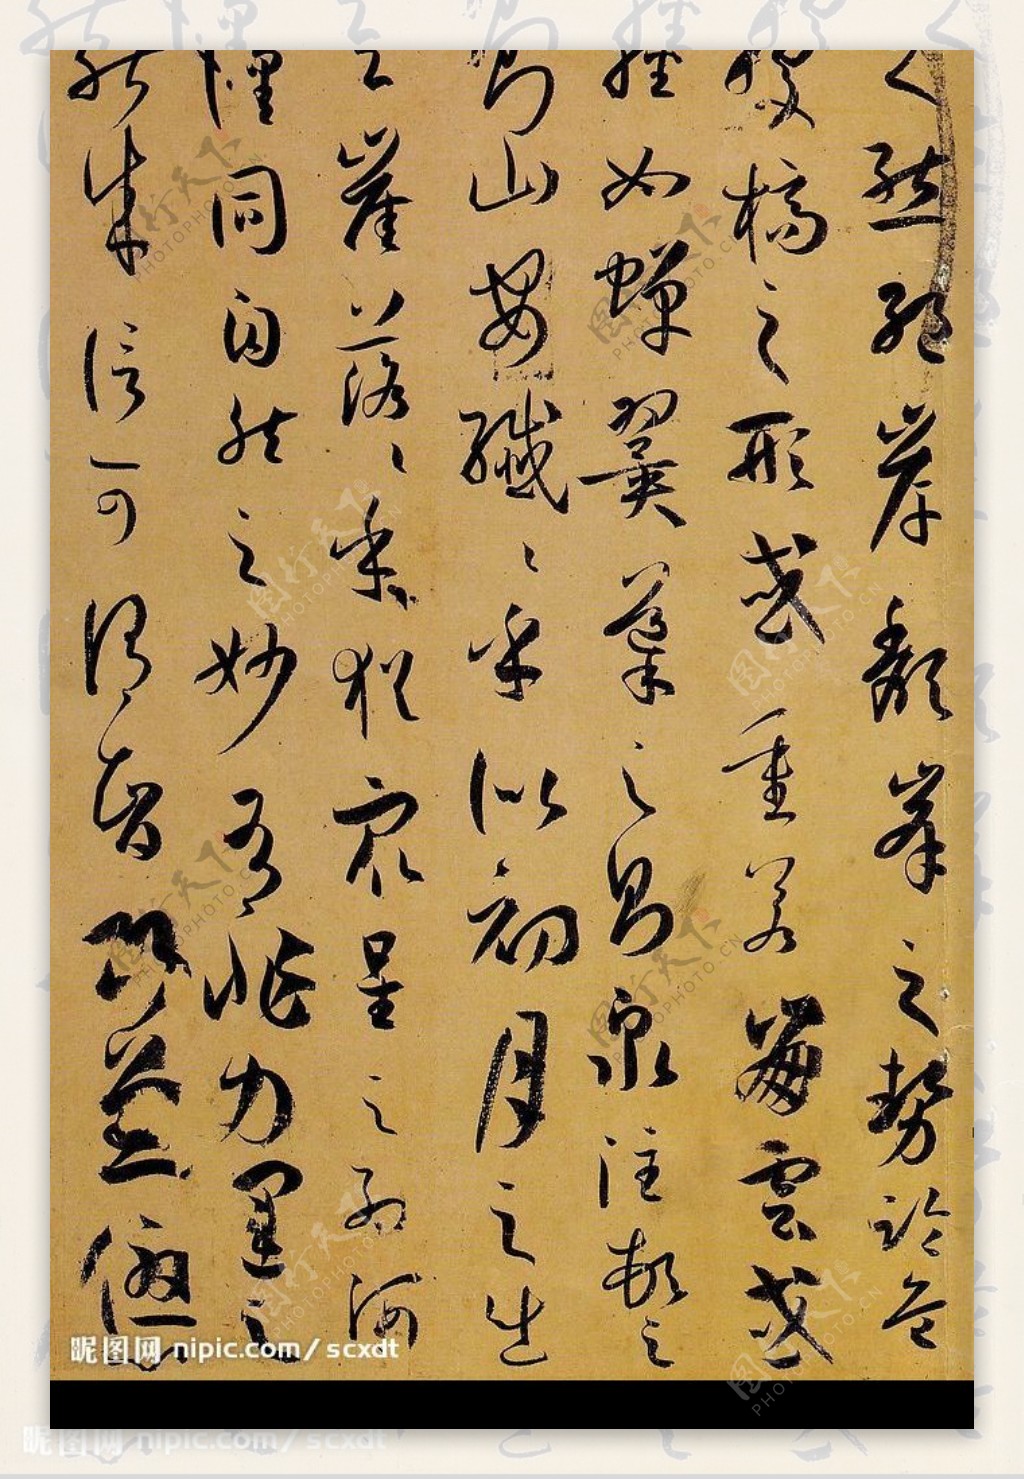 之態絕岸頹峯之勢臨危
據槁之形或重若崩雲或
輕如蟬翼導之則泉注頓之
則山安纖〻乎似初月之出
天崖落〻乎猶眾星之列河
漢同自然之妙有非力運之
能成信可謂智巧兼優心
昵图网 nipic.com/scxdt
昵图网 nipic.com/scxdt
图行天下 PHOTOPHOTO.CN